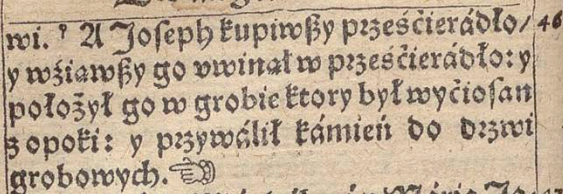 wi. ⁊ A Joſeph kupiwſzy prześćierádło/ 46
y wźiąwſzy go vwinął w prześćierádło: y
położył go w grobie ktory był wyćioſan
z opoki: y przywálił kámień do drzwi
grobowych. ☜